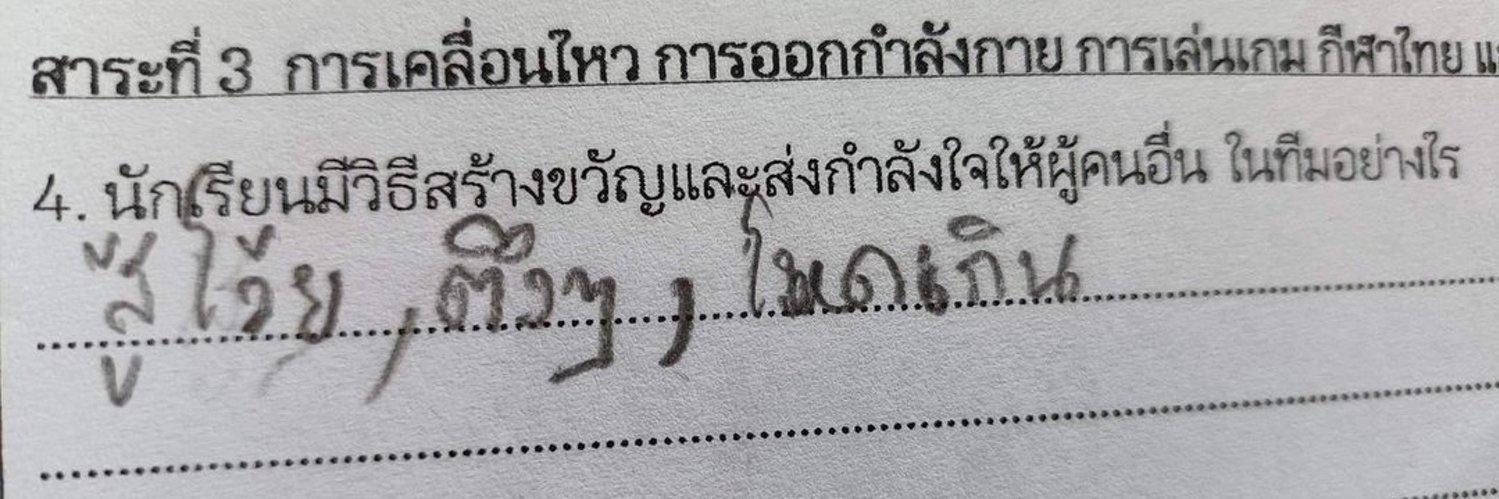 สาระที่ 3 การเคลื่อนไหว การออกกำลังกาย การเล่นเกม กีฬาไทย แ
4. นักเรียนมีวิธีสร้างขวัญและส่งกำลังใจให้ผู้คนอื่น ในทีมอย่างไร
สู้ไว้ย , ตึงๆ , โหดเกิน